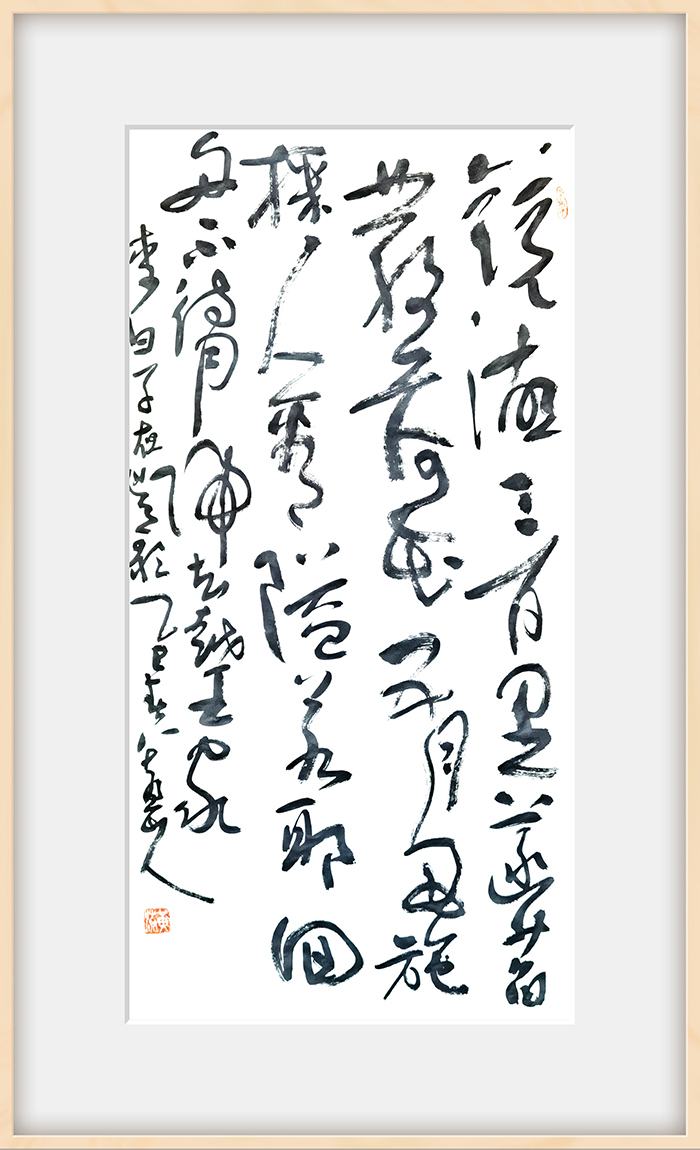 鏡湖三百里菡萏
發荷花五月西施
採人看隘若耶回
舟不待月歸去越王家
李白子夜吳歌乙巳春人